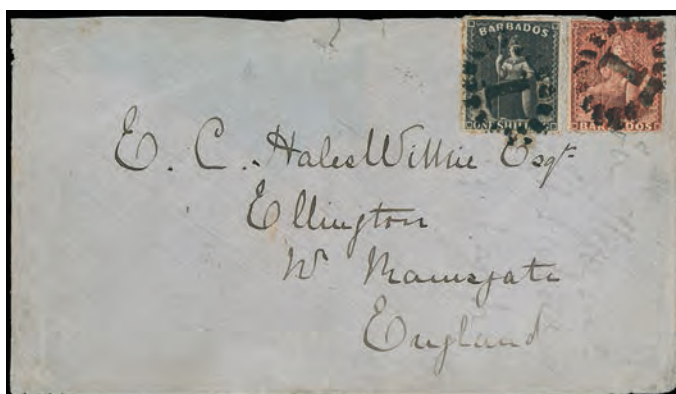 BARBADOS
ONE SHILL
1
1
BARBADOS
E. C. Hales Wilkie Esqr
Ellington
Nr Ramsgate
England